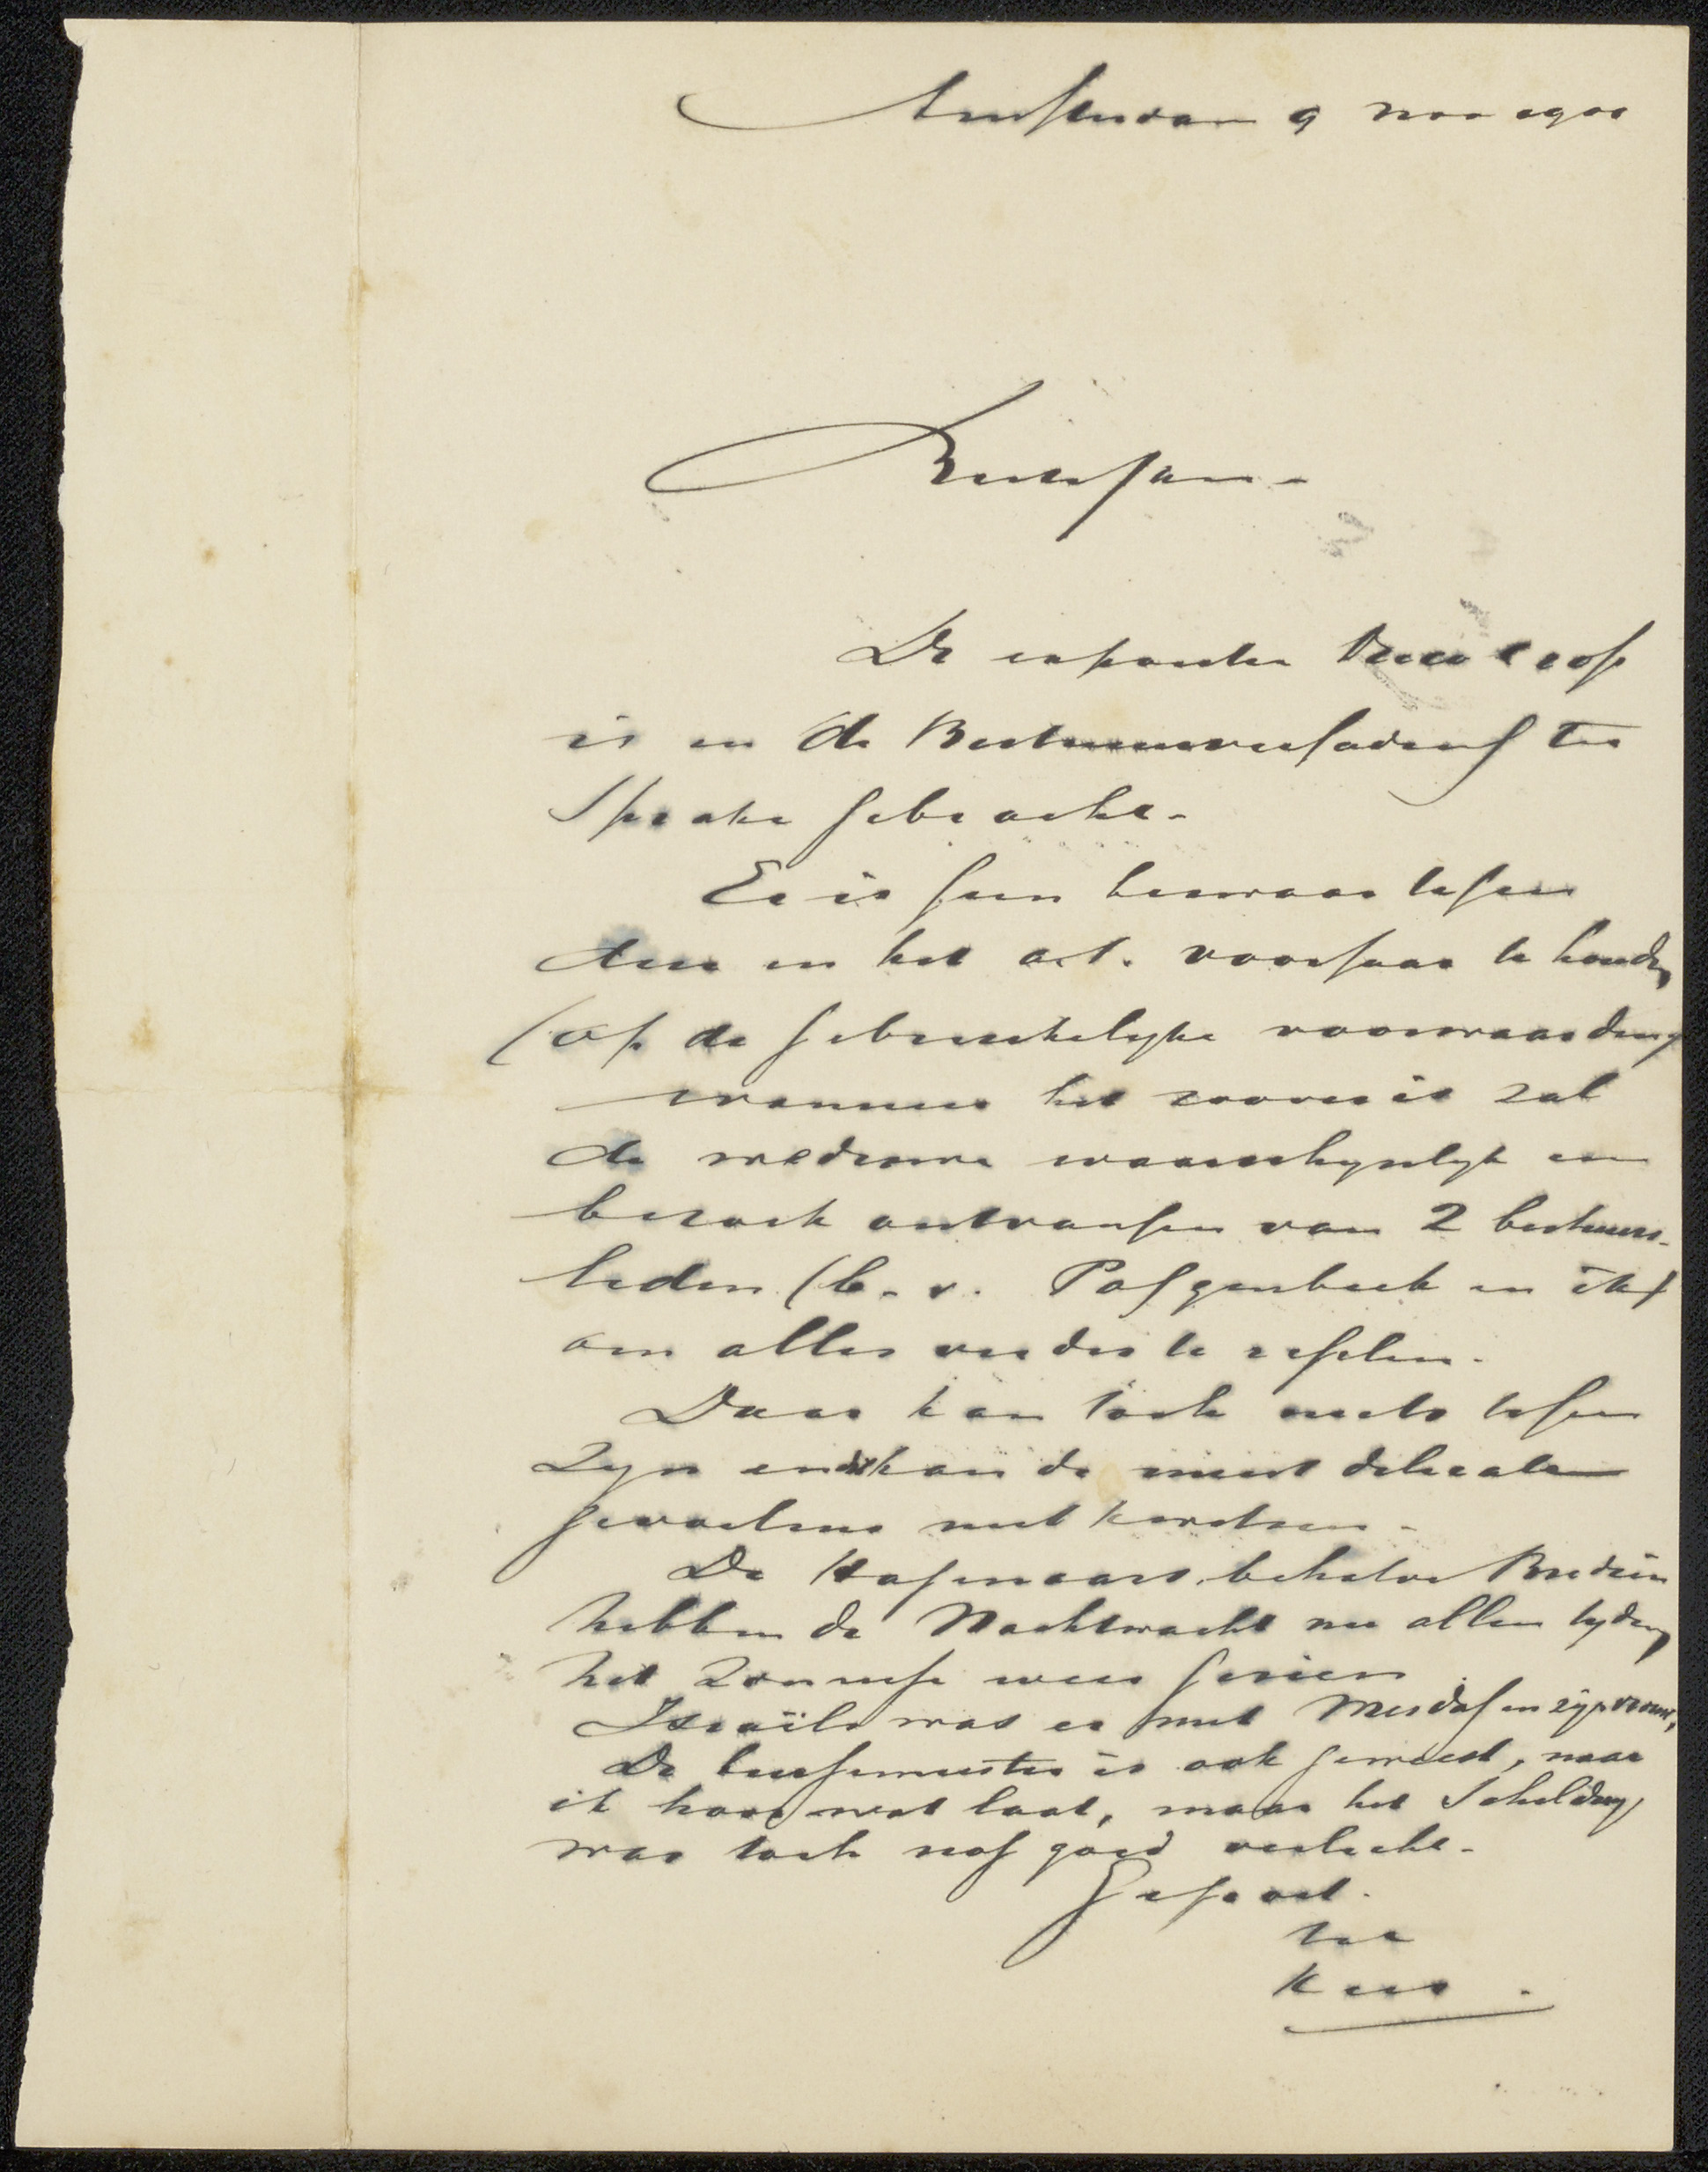 Amsterdam 9 nov 1901
Beste Jan.
De expositie
is in de Bestuursvergadering ter
Sprake gebracht.
Er is geen bezwaar tegen
deze in het a.s. voorjaar te houden
(op de gebruikelyke voorwaarden)
wanneer het zoover is zal
de weduwe waarschynlyk een
bezoek ontvangen van 2 bestuurs-
leden (b.v. Poggenbeek en ik)
om alles verder te regelen.
Daar kan toch niets tegen
zyn en dit kan de meest delicate
gevoelens niet kwetsen.
De Hagenaars, behalve Bredius
hebben de Nachtwacht nu allen tydens
het zonnige weer gezien
Israëls was er met Mesdag en zijn vrouw,
De burgemeester is ook geweest, maar
ik hoor wat laat, maar het Schildery
was toch nog goed verlicht.
Gegroet.
tt
Kees.